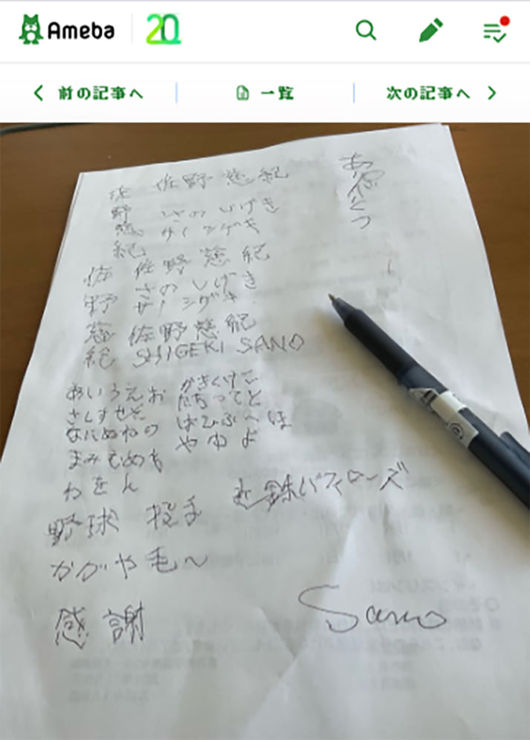 Ameba 20
前の記事へ 一覧 次の記事へ
佐 佐野慈紀
野 さのしげき
慈 サノシゲキ
紀
佐 佐野慈紀
野 さのしげき
サノシゲキ
慈 佐野慈紀
紀 SHIGEKI SANO
あいうえお かきくけこ
さしすせそ たちつてと
なにぬねの はひふへほ
まみむめも やゆよ
わをん
野球 投手 近鉄バファローズ
かがや毛〜
感謝
Sano